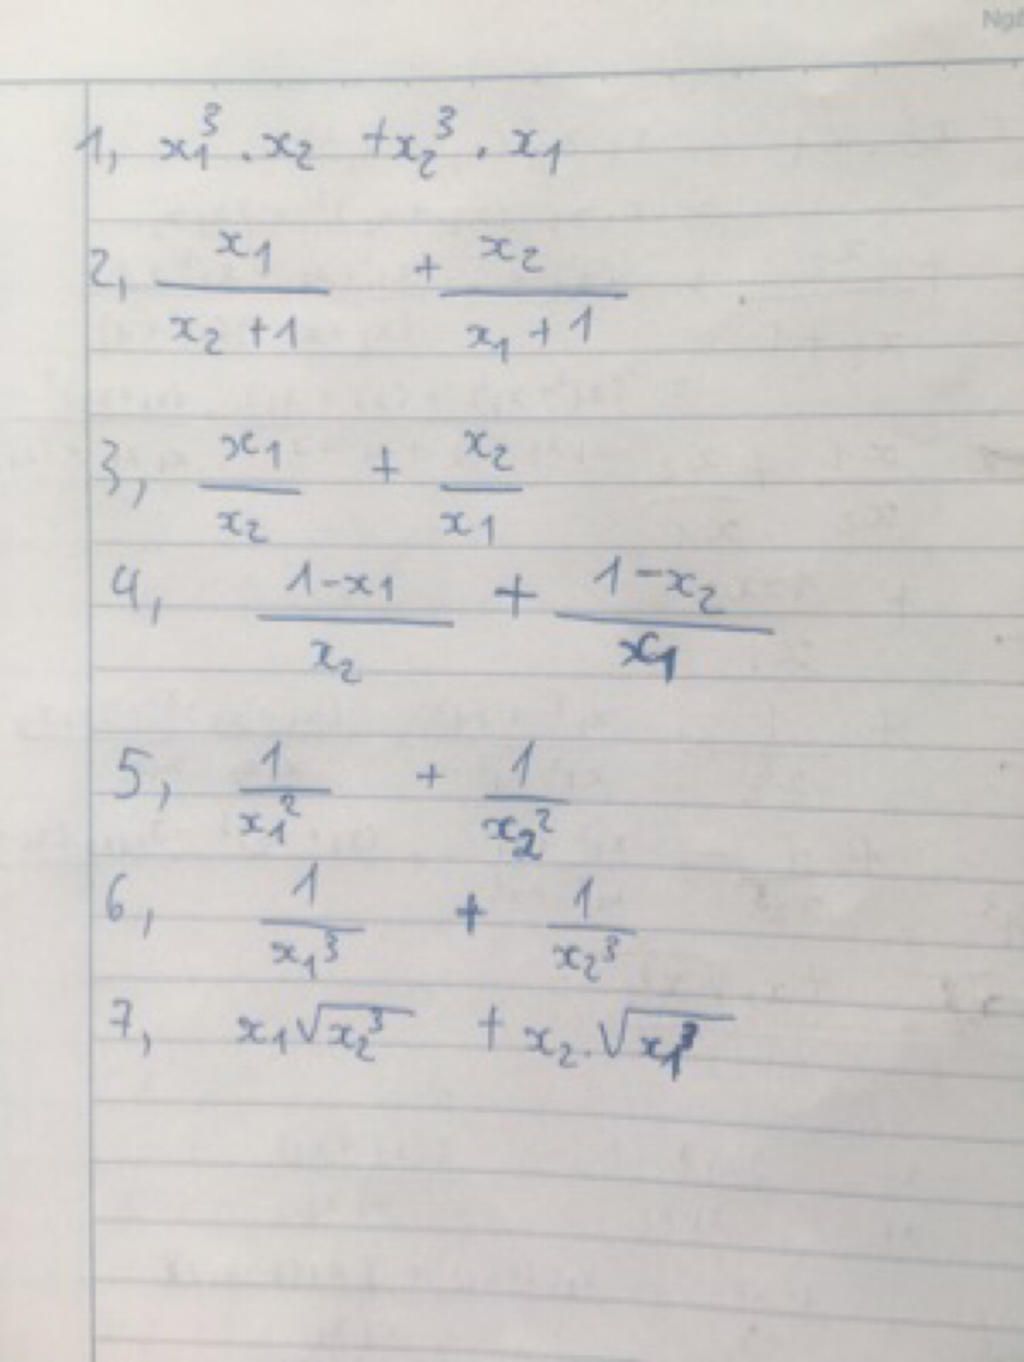 Ngà
1, x₁³ . x₂ + x₂³ . x₁
2, x₁/(x₂ + 1) + x₂/(x₁ + 1)
3, x₁/x₂ + x₂/x₁
4, (1 - x₁)/x₂ + (1 - x₂)/x₁
5, 1/x₁² + 1/x₂²
6, 1/x₁³ + 1/x₂³
7, x₁√(x₂³) + x₂.√(x₁³)